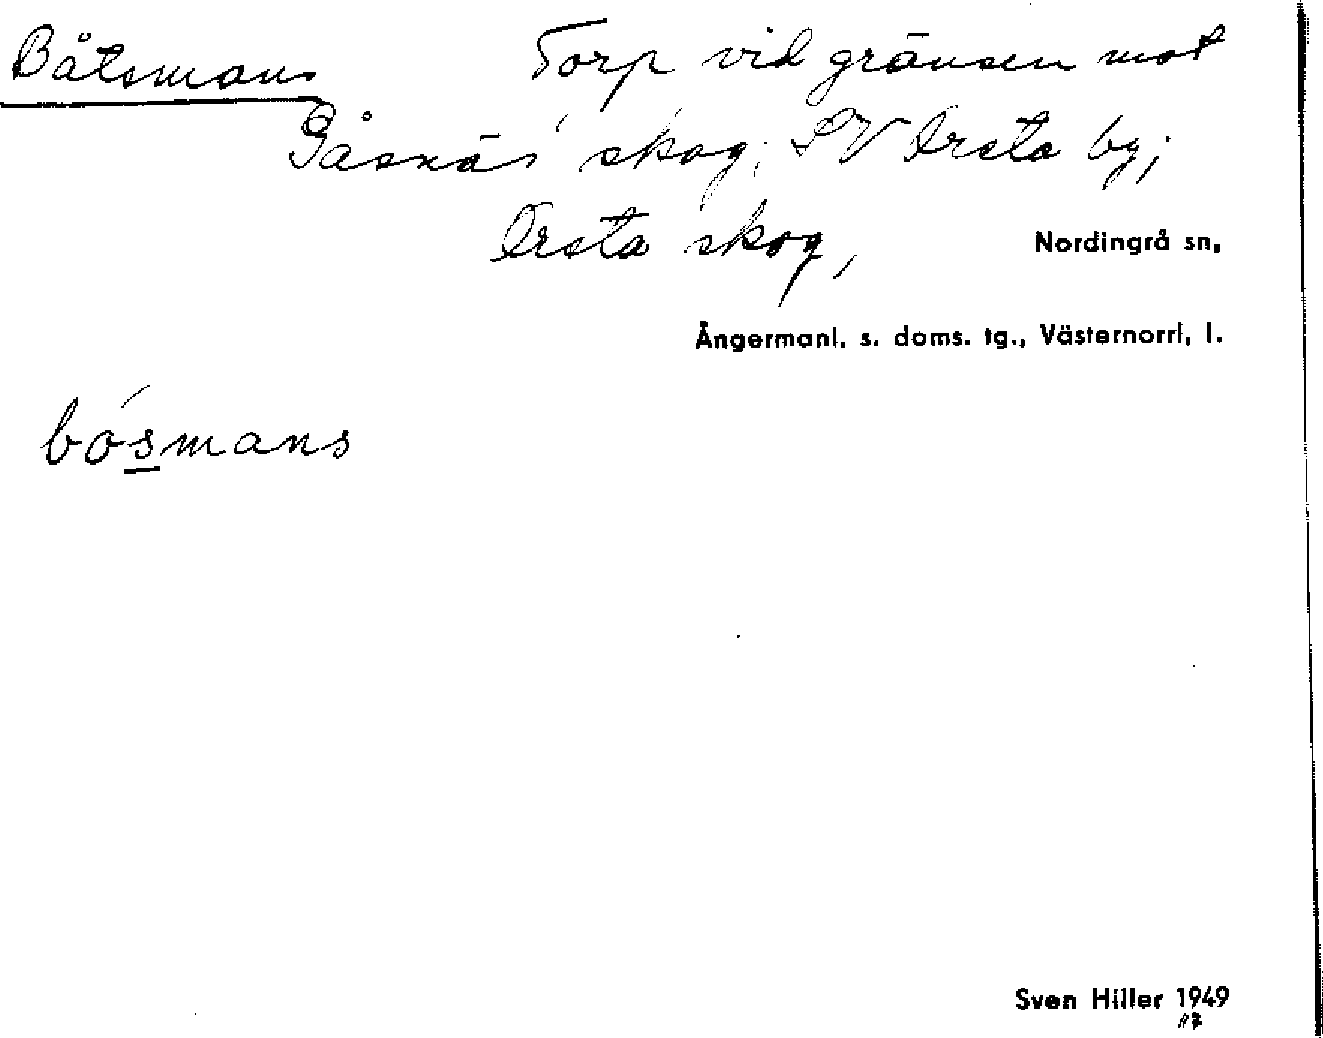 Båtsmans Torp vid gränsen mot
Gåsnäs skog; SV Orsta by;
Orsta skog, Nordingrå sn,
Ångermanl. s. doms. tg., Västernorrl. l.
bósmans
Sven Hiller 1949